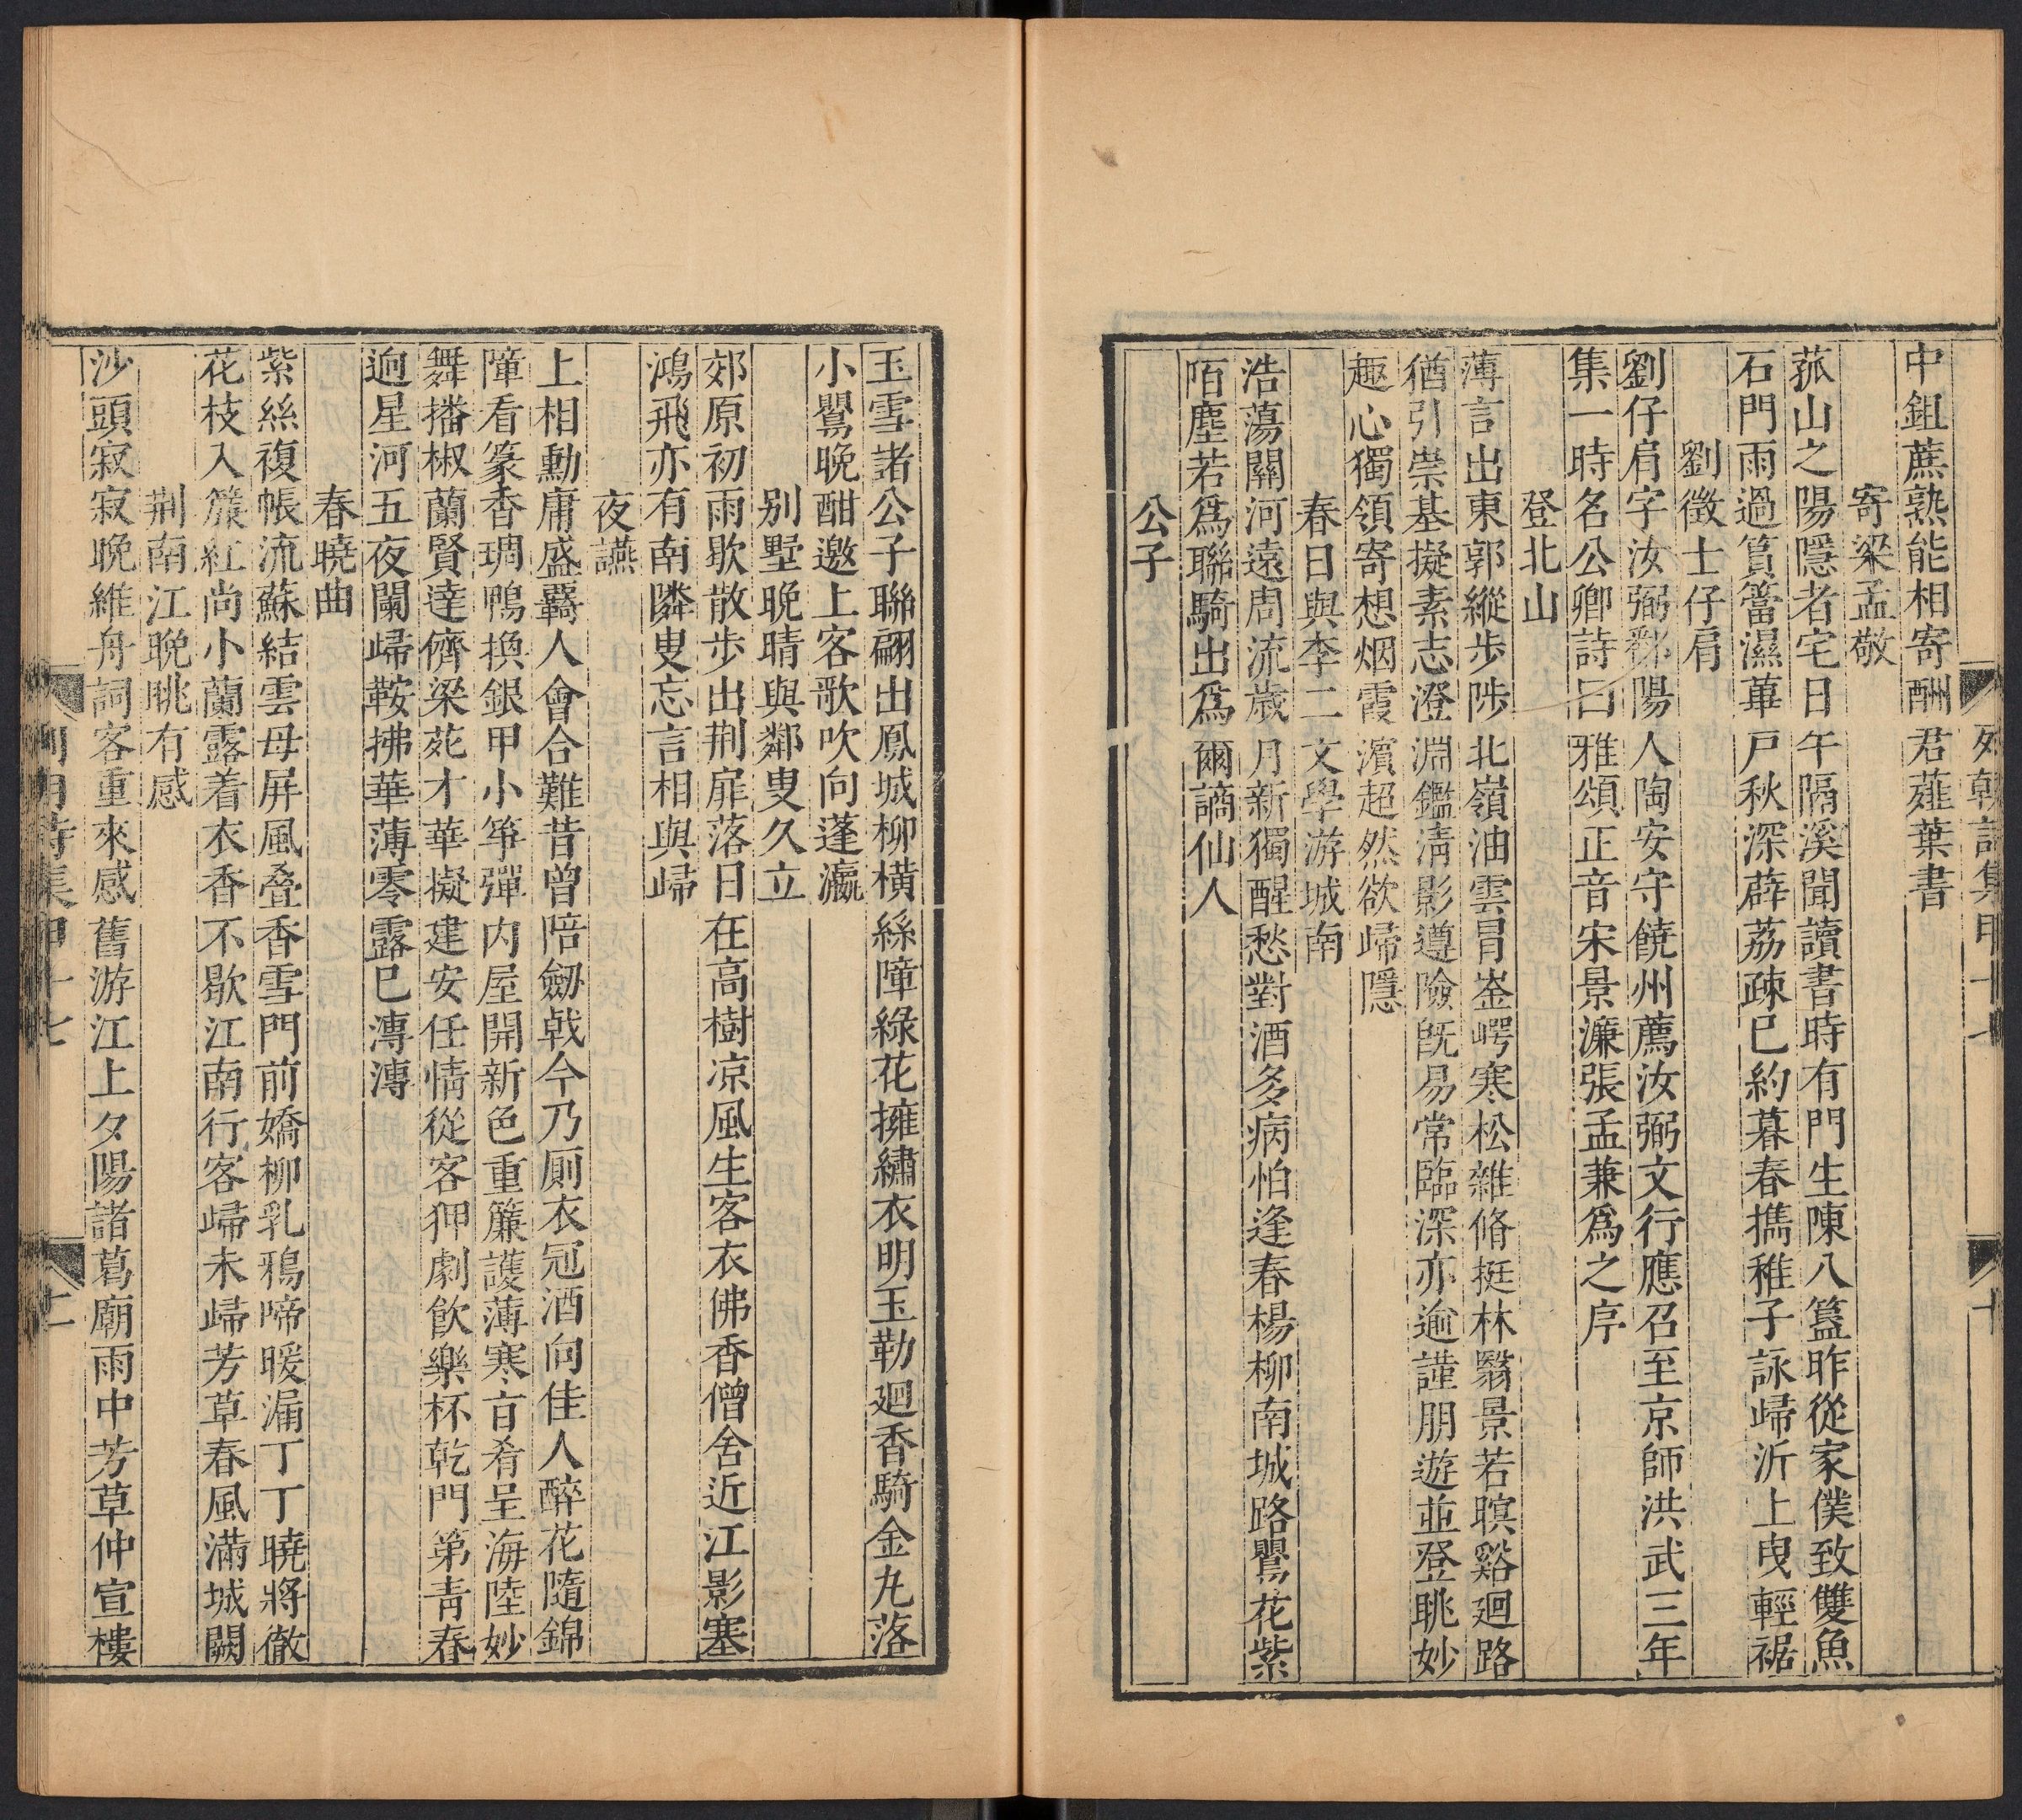 中鉏蔗熟能相寄酬君薤葉書
寄梁孟敬
菰山之陽隱者宅日午隔溪聞讀書時有門生陳八簋昨從家僕致雙魚
石門雨過篔簹濕蓽戸秋深薜荔疎已約暮春攜稚子詠歸沂上曳輕裾
劉徵士仔肩
劉仔肩字汝弼鄱陽人陶安守饒州薦汝弼文行應召至京師洪武三年
集一時名公卿詩曰雅頌正音宋景濂張孟兼爲之序
登北山
薄言出東郭縱步陟北嶺油雲冐崟崿寒松雜脩挺林翳景若暝谿廻路
猶引崇基擬素志澄淵鑑淸影遵險旣易常臨深亦逾謹朋遊並登眺妙
趣心獨領寄想烟霞濱超然欲歸隱
春日與李二文學游城南
浩蕩關河遠周流歲月新獨醒愁對酒多病怕逢春楊柳南城路鸎花紫
陌塵若爲聯騎出爲爾謫仙人
公子
玉雪諸公子聯翩出鳳城柳橫絲障綠花擁繡衣明玉勒廻香騎金丸落
小鸎晚酣邀上客歌吹向蓬瀛
别墅晚晴與鄰叟久立
郊原初雨歇散步出荆扉落日在高樹凉風生客衣佛香僧舍近江影塞
鴻飛亦有南隣叟忘言相與歸
夜讌
上相勳庸盛覊人會合難昔曾陪劒戟今乃厠衣冠酒向佳人醉花隨錦
障看篆香琱鴨換銀甲小箏彈内屋開新色重簾護薄寒㫖肴呈海陸妙
舞播椒蘭賢達儕梁苑才華擬建安任情從客狎劇飮樂杯乾門第靑春
逈星河五夜闌歸鞍拂華薄零露已漙漙
春曉曲
紫絲複帳流蘇結雲母屏風叠香雪門前嬌柳乳鴉啼暖漏丁丁曉將徹
花枝入簾紅尚小蘭露着衣香不歇江南行客歸未歸芳草春風滿城闕
荆南江晚眺有感
沙頭寂寂晚維舟詞客重來感舊游江上夕陽諸葛廟雨中芳草仲宣樓